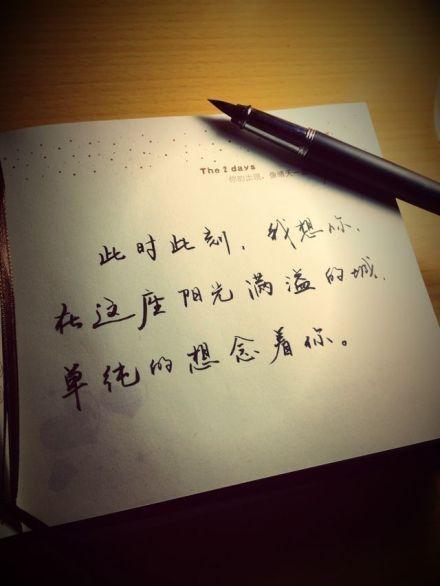 The 2 days
你的出现，像晴天
此时此刻，我想你，
在这座阳光满溢的城，
单纯的想念着你。